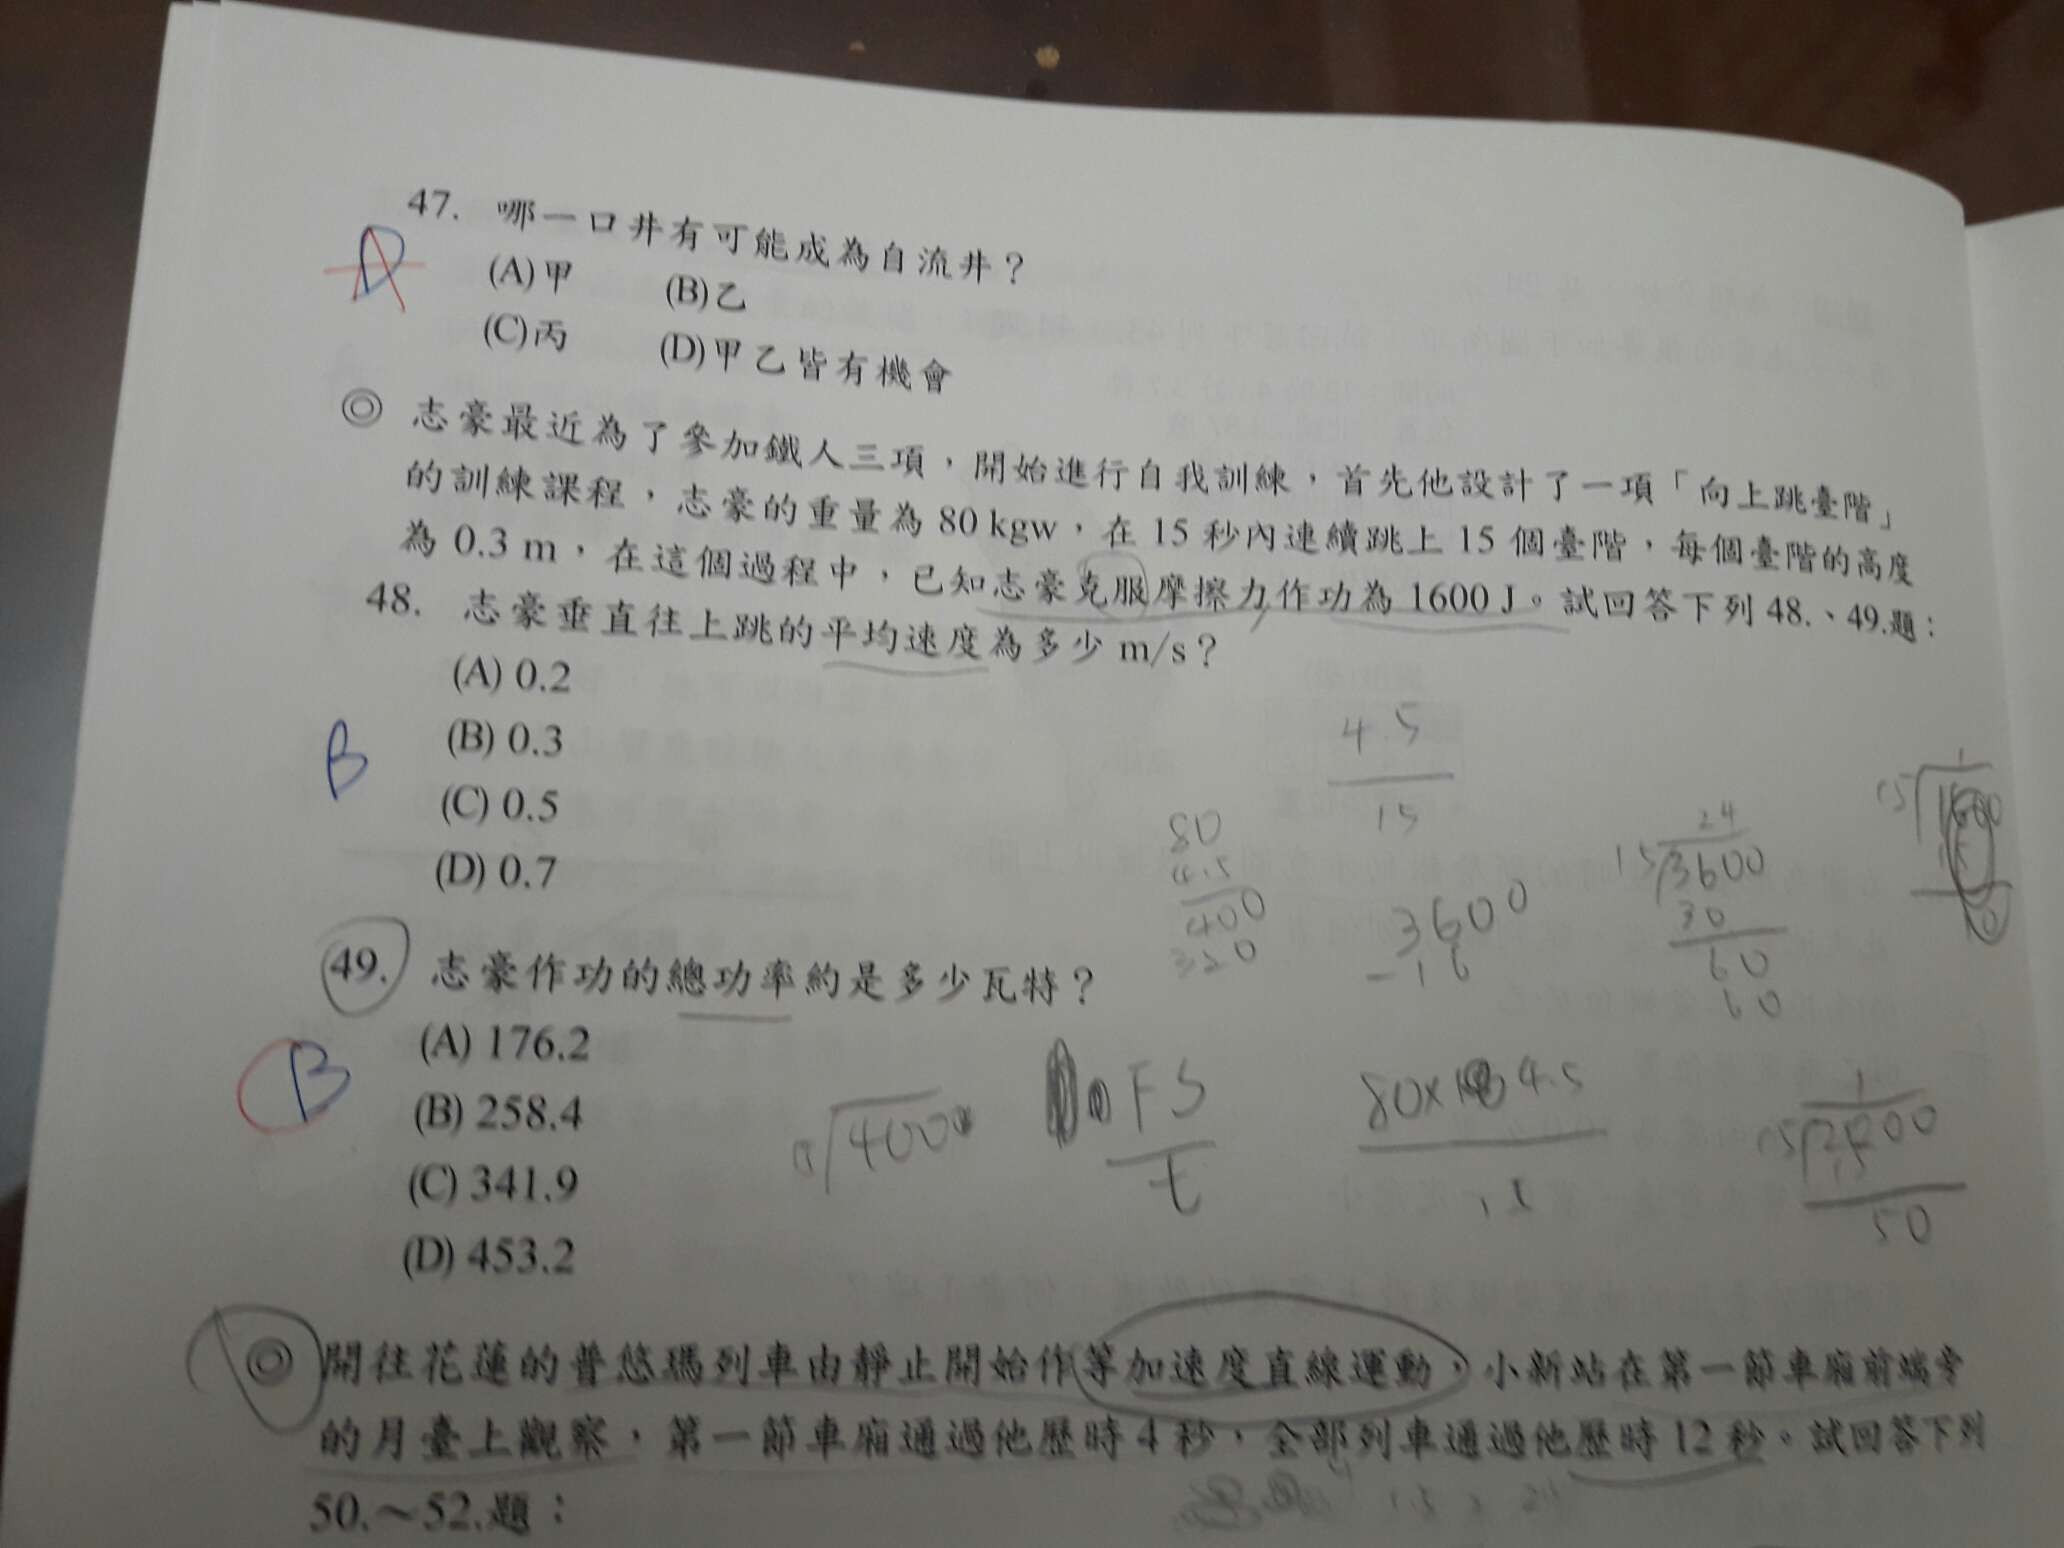 47. 哪一口井有可能成為自流井？
(A)甲 (B)乙
(C)丙 (D)甲乙皆有機會
◎ 志豪最近為了參加鐵人三項，開始進行自我訓練，首先他設計了一項「向上跳臺階」
的訓練課程，志豪的重量為 80 kgw，在 15 秒內連續跳上 15 個臺階，每個臺階的高度
為 0.3 m，在這個過程中，已知志豪克服摩擦力作功為 1600 J。試回答下列 48.、49.題：
48. 志豪垂直往上跳的平均速度為多少 m/s？
(A) 0.2
B (B) 0.3
(C) 0.5
(D) 0.7
4.5
15
80
4.5
400
320
3600
-16
24
15 3600
30
60
60
49. 志豪作功的總功率約是多少瓦特？
(A) 176.2
B (B) 258.4
(C) 341.9
(D) 453.2
FS
t
4.5
15
50
◎ 開往花蓮的普悠瑪列車由靜止開始作等加速度直線運動，小新站在第一節車廂前端旁
的月臺上觀察，第一節車廂通過他歷時 4 秒，全部列車通過他歷時 12 秒。試回答下列
50.～52.題：